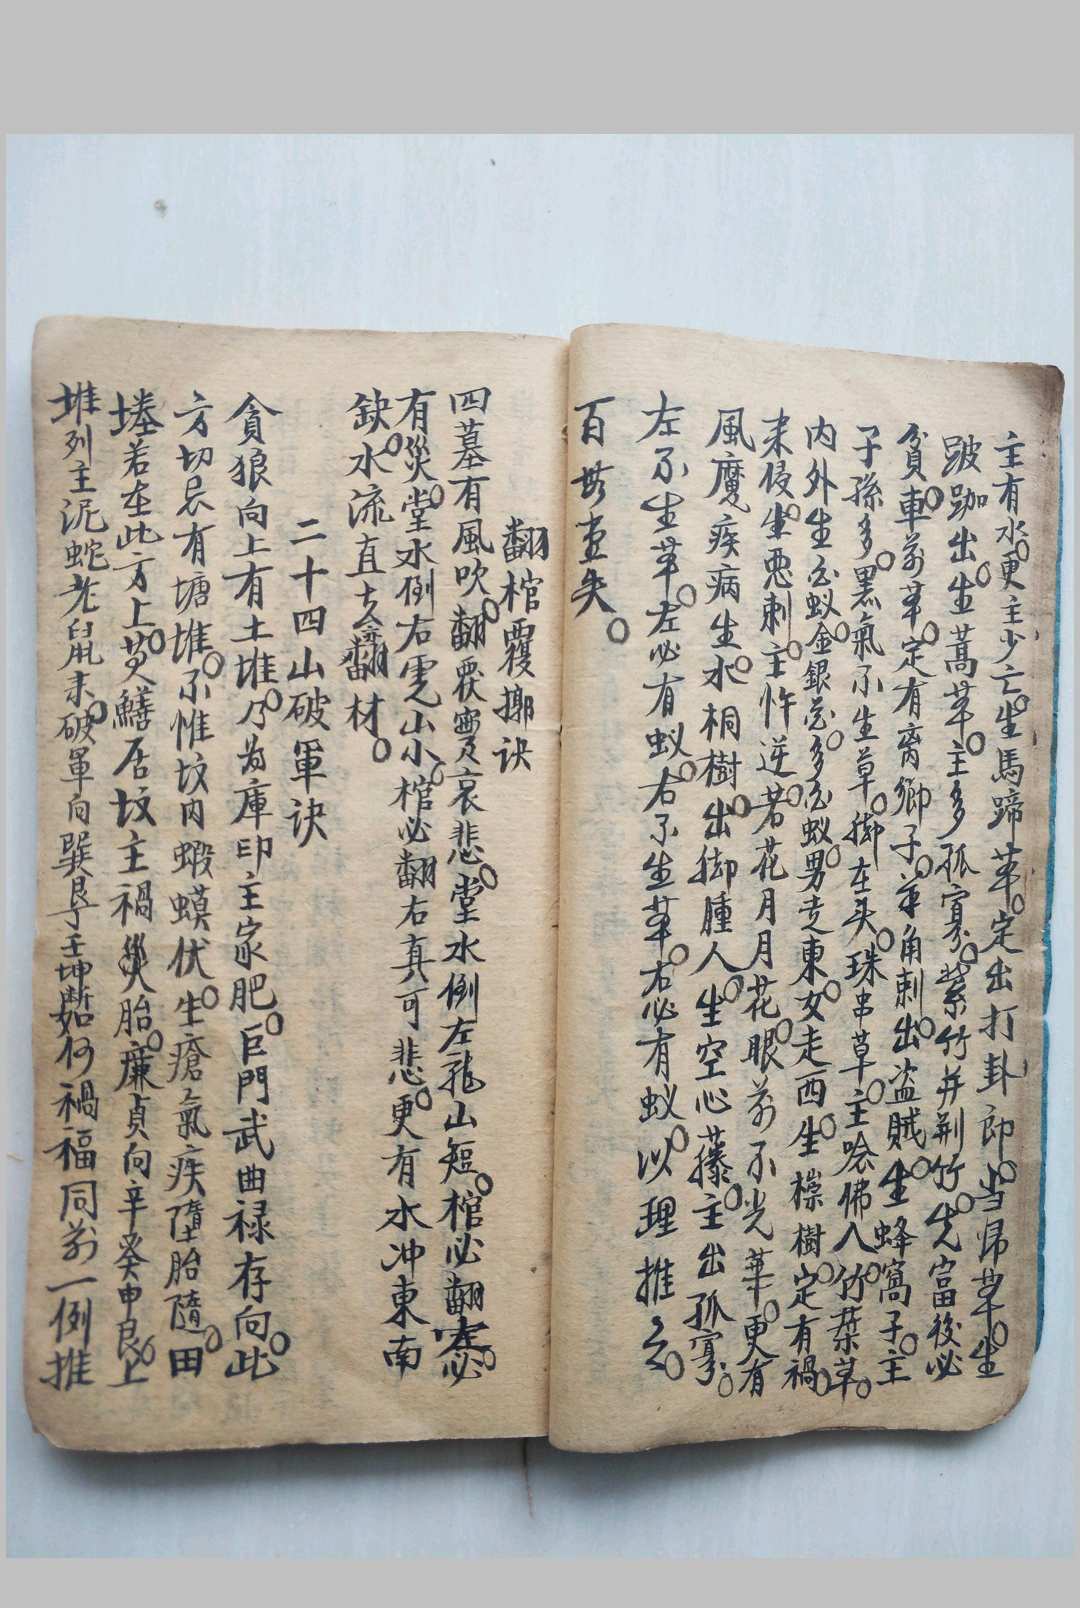 主有水。更主少亡。生馬蹄草。定出打卦郎。当帰草。生
跛跏出。生蒿草。主多孤寡。紫竹并荆竹。先富後必
貧。車前草。定有离鄉子。羊角刺。出盗賊。生蜂窩子。主
子孫多。黑氣不生草。脚在头。珠串草。主唸佛人。竹葉草。
内外生白蚁。金銀花。多白蚁。男走東。女走西。生樣樹。定有禍。
来侵。生惡刺。主忤逆。若花月月花。眼前不光華。更有
風魔疾病生。水桐樹。出脚腫人。生空心藤。主出孤寡。
左不生草。左必有蚁。右不生草。右必有蚁。以理推之。
百無一失。
翻棺覆槨诀
四墓有風吹。翻覆實哀悲。堂水倒左龍山短。棺必翻
有災。堂水倒右虎山小。棺必翻右真可悲。更有水冲東南
缺。水流直去翻材。
二十四山破軍诀
貪狼向上有土堆。乃为庫印主家肥。巨門武曲禄存向。此
方切忌有塘堆。不惟坟内蝦蟆伏。生瘡氣疾墮胎隨。田
塍若在此方上。黄鱔居坟主禍災胎。廉貞向辛癸申良。上
堆列主泥蛇老鼠来。破軍向巽艮丁壬坤 何禍福同前一例推